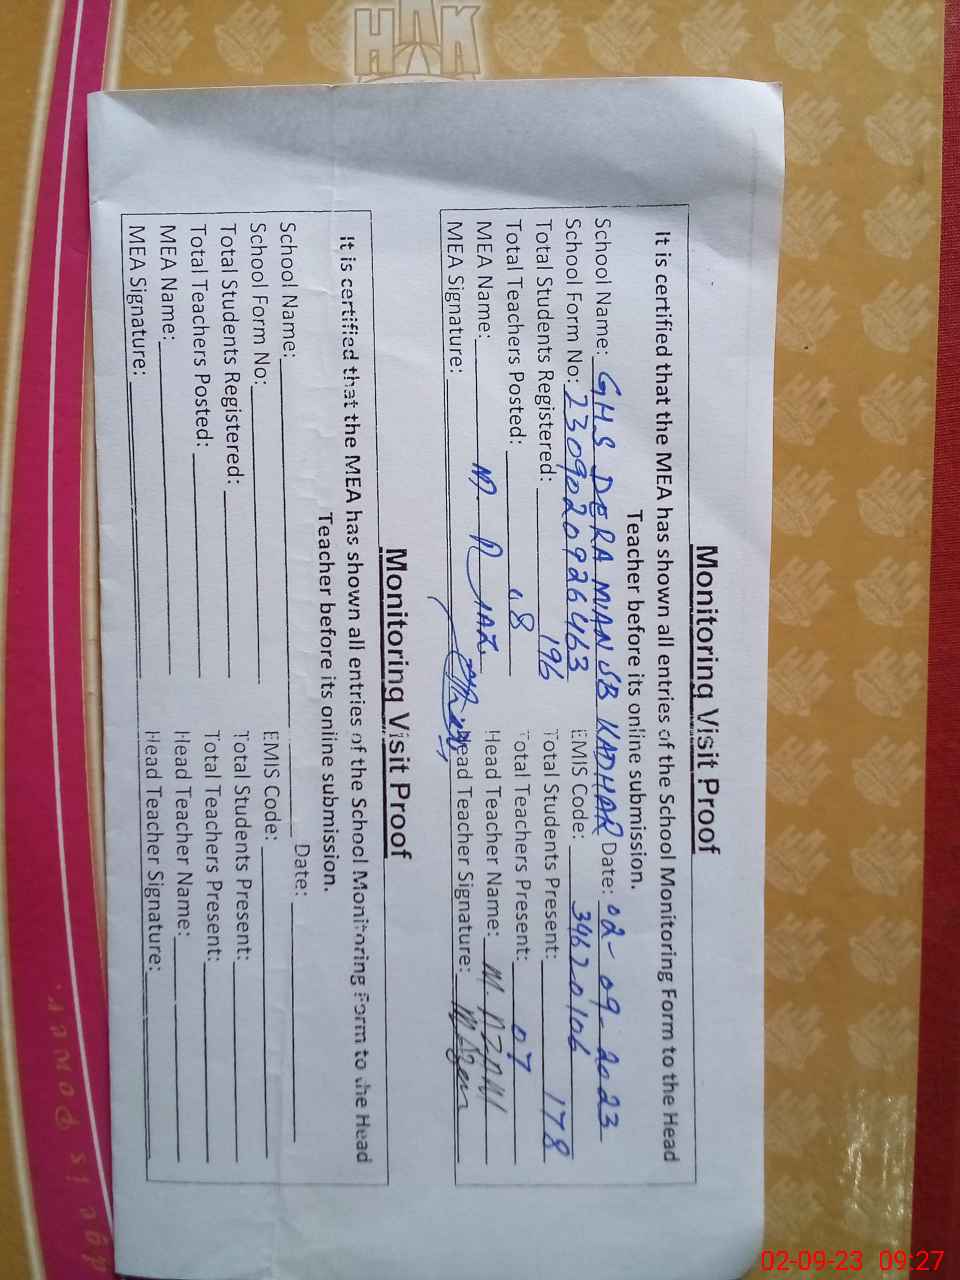 HAK
Monitoring Visit Proof
It is certified that the MEA has shown all entries of the School Monitoring Form to the Head
Teacher before its online submission.
School Name: GHS DERA MIAN SB KADHAR Date: 02-09-2023
School Form No: 2309020926463 EMIS Code: 34620106
Total Students Registered: 196 Total Students Present: 178
Total Teachers Posted: 08 Total Teachers Present: 07
MEA Name: M RIAZ Head Teacher Name: M. AZAM
MEA Signature: Head Teacher Signature: M Azam
Monitoring Visit Proof
It is certified that the MEA has shown all entries of the School Monitoring Form to the Head
Teacher before its online submission.
School Name: Date:
School Form No: EMIS Code:
Total Students Registered: Total Students Present:
Total Teachers Posted: Total Teachers Present:
MEA Name: Head Teacher Name:
MEA Signature: Head Teacher Signature:
02-09-23 09:27